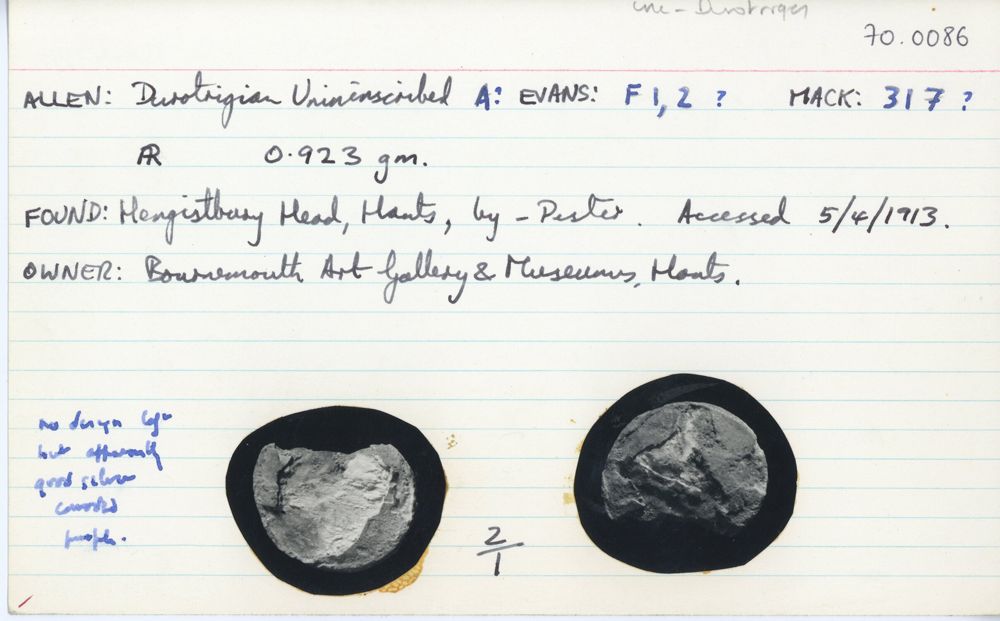 - Durotriges
70.0086
ALLEN: Durotrigian Unininscribed A: EVANS: F 1, 2 ? MACK: 317 ?
AR 0.923 gm.
FOUND: Hengistbury Head, Hants, by - Pester. Accessed 5/4/1913.
OWNER: Bournemouth Art Gallery & Museums, Hants.
no design left
but apparently
good silver
corroded
purple.
2/1